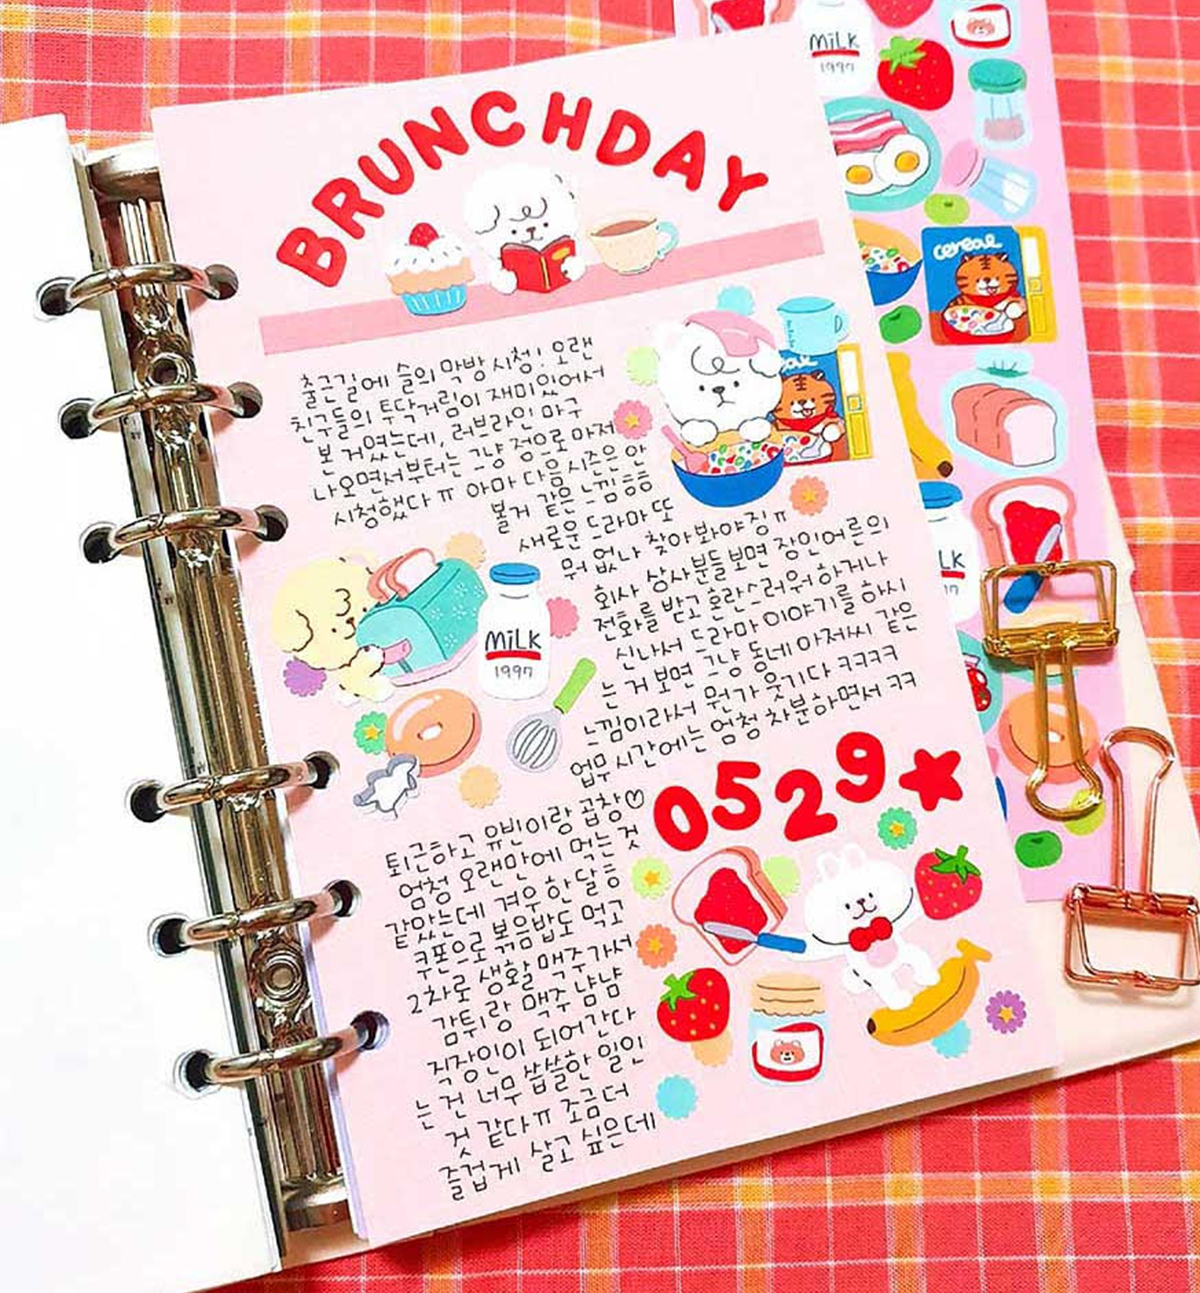 BRUNCHDAY
출근길에 슬의 막방 시청! 오랜
친구들의 투닥거림이 재미있어서
본 거였는데, 러브라인 마구
나오면서부터는 그냥 정으로 마저
시청했다 ㅠ 아마 다음 시즌은 안
볼거 같은 느낌 흠흠
새로운 드라마 또
뭐 없나 찾아봐야징ㅠ
회사 상사분들보면 장인어른의
전화를 받고 혼란스러워 하거나
신나서 드라마 이야기를 하시
는 거 보면 그냥 동네 아저씨 같은
느낌이라서 뭔가 웃기다 ㅋㅋㅋㅋ
업무 시간에는 엄청 차분하면서 ㅋㅋ
MiLK
1997
0529
퇴근하고 유빈이랑 곱창♡
엄청 오랜만에 먹는 것
같았는데 겨우 한달흠
쿠폰으로 볶음밥도 먹고
2차로 생활맥주가서
감튀랑 맥주 냠냠
직장인이 되어간다
는 건 너무 씁쓸한 일인
것 같다ㅠ 조금 더
즐겁게 살고 싶은데
MiLK
1997
cereal